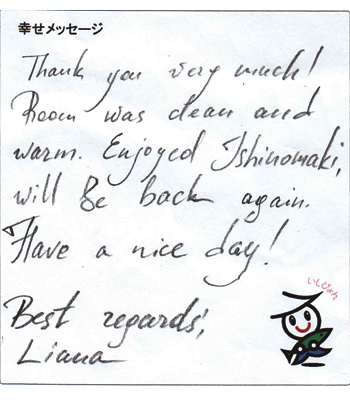 幸せメッセージ
Thank you very much!
Room was clean and
warm. Enjoyed Ishinomaki,
will be back again.
Have a nice day!
いしぴょん
Best regards,
Liana